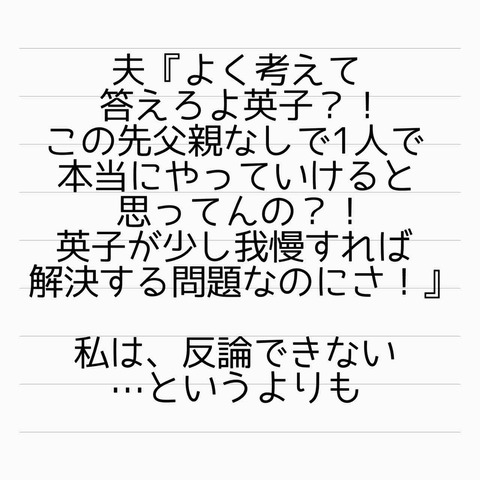 夫『よく考えて
答えろよ英子？！
この先父親なしで1人で
本当にやっていけると
思ってんの？！
英子が少し我慢すれば
解決する問題なのにさ！』
私は、反論できない
…というよりも